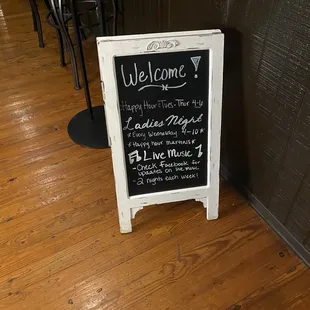 Welcome!
Happy Hour Tues-Thur 4-6
Ladies Night
*Every Wednesday 4-10*
*Happy Hour martinis*
Live Music
- Check Facebook for
updates on the music
- 2 nights each week!